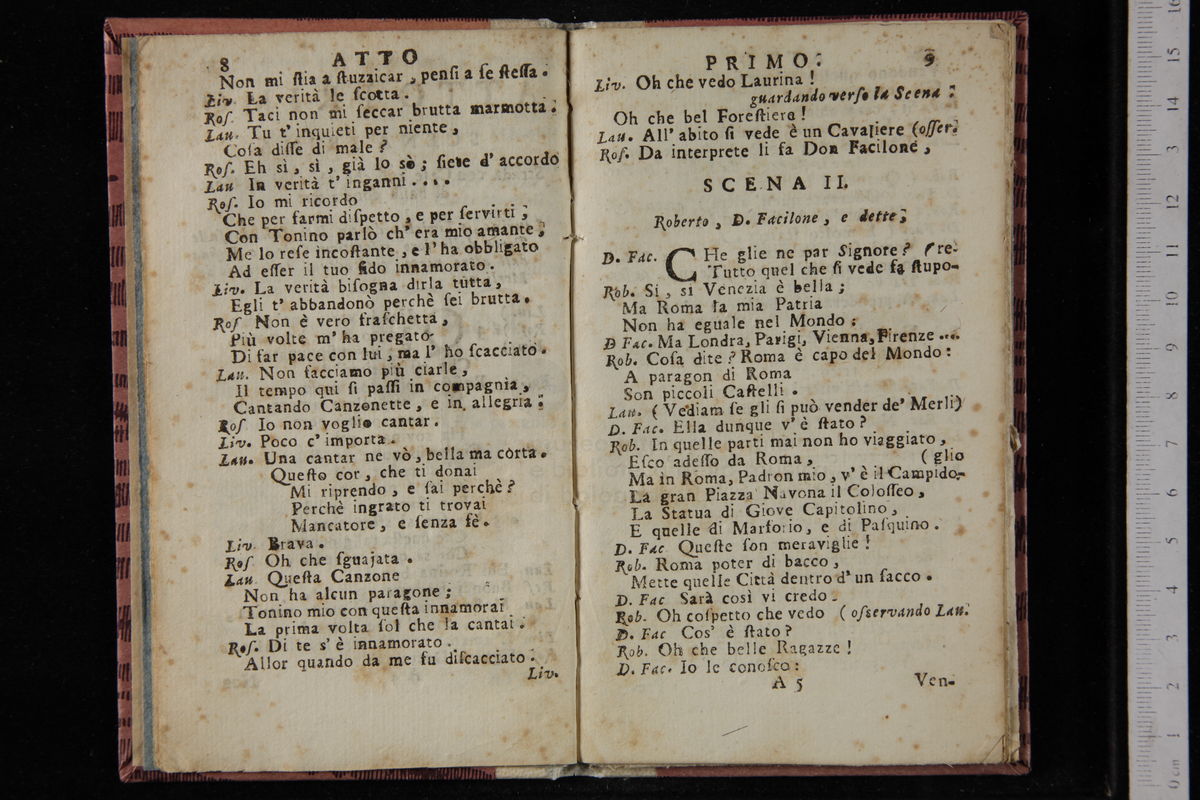 8 ATTO
Non mi ſtia a ſtuzzicar, penſi a ſe ſteſſa.
Liv. La verità le ſcotta.
Roſ. Taci non mi ſeccar brutta marmotta.
Lau. Tu t' inquieti per niente,
Coſa diſſe di male?
Roſ. Eh sì, sì, già lo sò; ſiete d' accordo
Lau In verità t' inganni....
Roſ. Io mi ricordo
Che per farmi diſpetto, e per ſervirti;
Con Tonino parlò ch' era mio amante;
Me lo reſe incoſtante, e l' ha obbligato
Ad eſſer il tuo fido innamorato.
Liv. La verità biſogna dirla tutta,
Egli t' abbandonò perchè ſei brutta.
Roſ Non è vero fraſchetta,
Più volte m' ha pregato
Di far pace con lui, ma l' ho ſcacciato.
Lau. Non facciamo più ciarle,
Il tempo qui ſi paſſi in compagnia,
Cantando Canzonette, e in allegria;
Roſ Io non voglio cantar.
Liv. Poco c' importa.
Lau. Una cantar ne vò, bella ma corta.
Queſto cor, che ti donai
Mi riprendo, e ſai perchè?
Perchè ingrato ti trovai
Mancatore, e ſenza fè.
Liv. Brava.
Roſ Oh che ſguajata.
Lau Queſta Canzone
Non ha alcun paragone;
Tonino mio con queſta innamorai
La prima volta ſol che la cantai.
Roſ. Di te s' è innamorato.
Allor quando da me fu diſcacciato.
Liv.
PRIMO. 9
Liv. Oh che vedo Laurina!
guardando verſo la Scena.
Oh che bel Foreſtiere!
Lau. All' abito ſi vede è un Cavaliere (oſſer.
Roſ. Da interprete li fa Don Facilone,
SCENA II.
Roberto, D. Facilone, e dette;
D. Fac. CHe glie ne par Signore? (re.
Tutto quel che ſi vede fa ſtupo-
Rob. Si, si Venezia è bella;
Ma Roma la mia Patria
Non ha eguale nel Mondo:
D Fac. Ma Londra, Parigi, Vienna, Firenze....
Rob. Coſa dite? Roma è capo del Mondo:
A paragon di Roma
Son piccoli Caſtelli.
Lau. (Vediam ſe gli ſi può vender de' Merli)
D. Fac. Ella dunque v' è ſtato?
Rob. In quelle parti mai non ho viaggiato,
Eſco adeſſo da Roma, (glio
Ma in Roma, Padron mio, v' è il Campido-
La gran Piazza Navona il Coloſſeo,
La Statua di Giove Capitolino,
E quelle di Marforio, e di Paſquino.
D. Fac Queſte ſon meraviglie!
Rob. Roma poter di bacco,
Mette quelle Città dentro d' un ſacco.
D. Fac Sarà così vi credo.
Rob. Oh coſpetto che vedo (oſservando Lau.
D. Fac Cos' è ſtato?
Rob. Oh che belle Ragazze!
D. Fac. Io le conoſco:
A 5 Ven-
0 cm 1 2 3 4 5 6 7 8 9 10 11 12 13 14 15 16